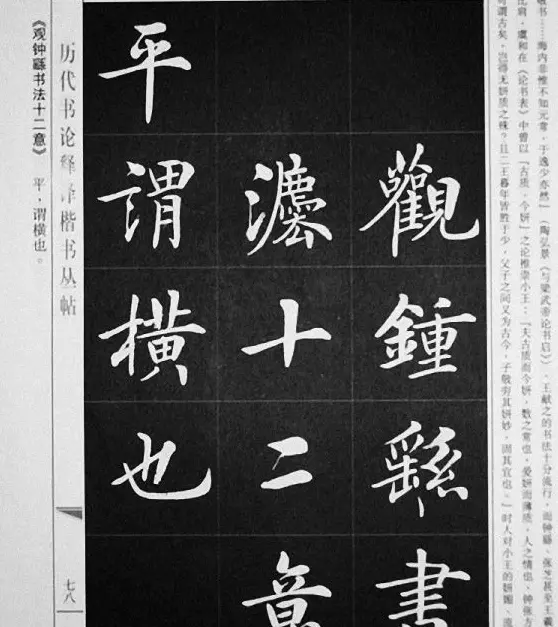 敬书……海内非惟不知元常，于逸少亦然”（陶弘景《与梁武帝论书启》）、王献之的书法十分流行，而钟繇、张芝甚至王羲
比肩，虞和在《论书表》中曾以“古质、今妍”之论推崇小王：“夫古质而今妍，数之常也，爱妍而薄质，人之情也。钟张方
可谓古矣，岂得无妍质之殊？且二王暮年皆胜于少，父子之间又为古今，子敬穷其妍妙，固其宜也。”时人对小王的妍媚、流
觀鍾繇書
灋十二意
平謂橫也
历代书论释译楷书丛帖
七八
《观钟繇书法十二意》 平，谓横也。